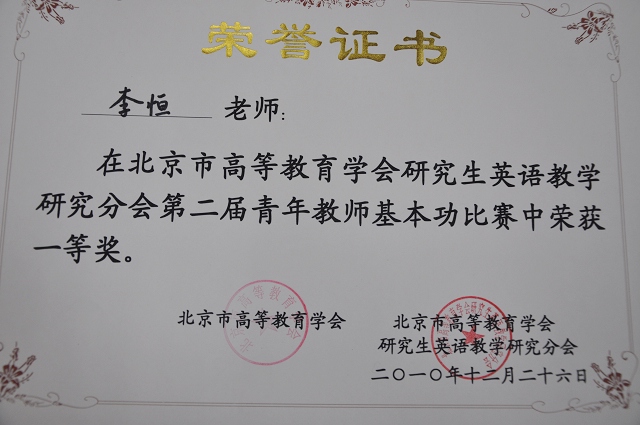 荣誉证书
李恒 老师:
在北京市高等教育学会研究生英语教学
研究分会第二届青年教师基本功比赛中荣获
一等奖。
北京市高等教育学会
北京市高等教育学会
研究生英语教学研究分会
二〇一〇年十二月二十六日